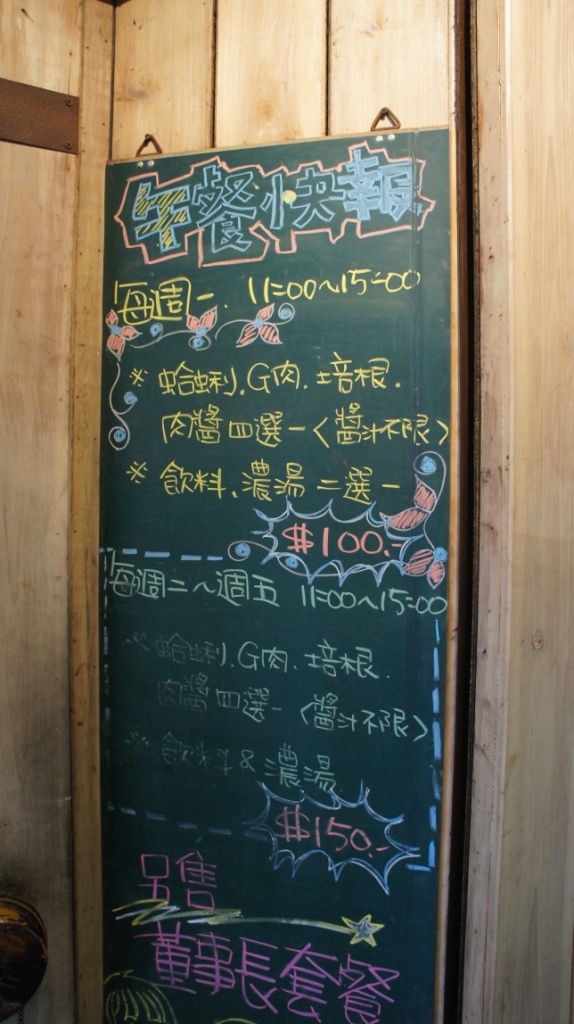 午餐快報
每週一. 11:00~15:00
※ 蛤蜊.G肉.培根.
肉醬四選一<醬汁不限>
※ 飲料.濃湯二選一
$100.-
每週二~週五 11:00~15:00
※ 蛤蜊.G肉.培根.
肉醬四選一<醬汁不限>
※ 飲料&濃湯
$150.-
另售
董事長套餐